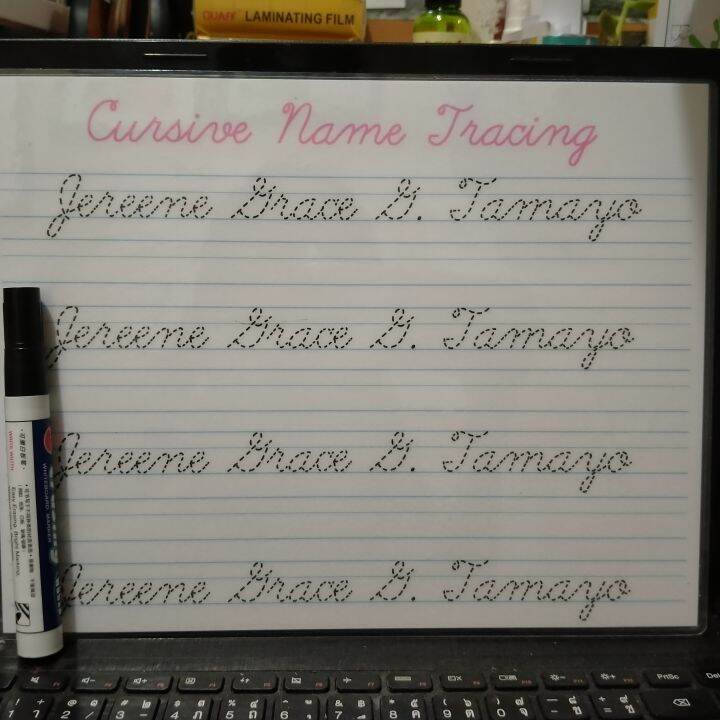 QUAFF LAMINATING FILM
Cursive Name Tracing
Jereene Grace G. Tamayo
Jereene Grace G. Tamayo
Jereene Grace G. Tamayo
Jereene Grace G. Tamayo
WHITEBOARD MARKER
Easy Erasing, Bright Marking.
PrtSc